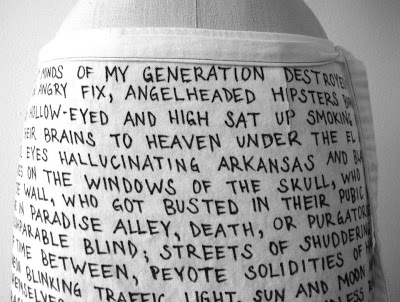 MINDS OF MY GENERATION DESTROYE
ANGRY FIX, ANGELHEADED HIPSTERS
HOLLOW-EYED AND HIGH SAT UP SMOKING
HEIR BRAINS TO HEAVEN UNDER THE EL
EYES HALLUCINATING ARKANSAS AND
ON THE WINDOWS OF THE SKULL, WHO
WALL, WHO GOT BUSTED IN THEIR PUBIC
IN PARADISE ALLEY, DEATH, OR PURGATOR
PARABLE BLIND; STREETS OF SHUDDERING
TIME BETWEEN, PEYOTE SOLIDITIES OF
BLINKING TRAFFIC LIGHT, SUN AND MOON
ENSELVES